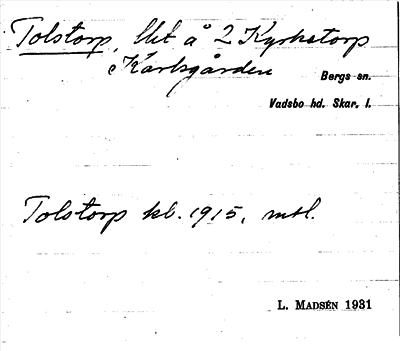 Tolstorp, lht å 2 Kyrkstorp
Karlsgården
Bergs sn.
Vadsbo hd. Skar. l.
Tolstorp kl. 1915, mtl.
L. MADSÉN 1931